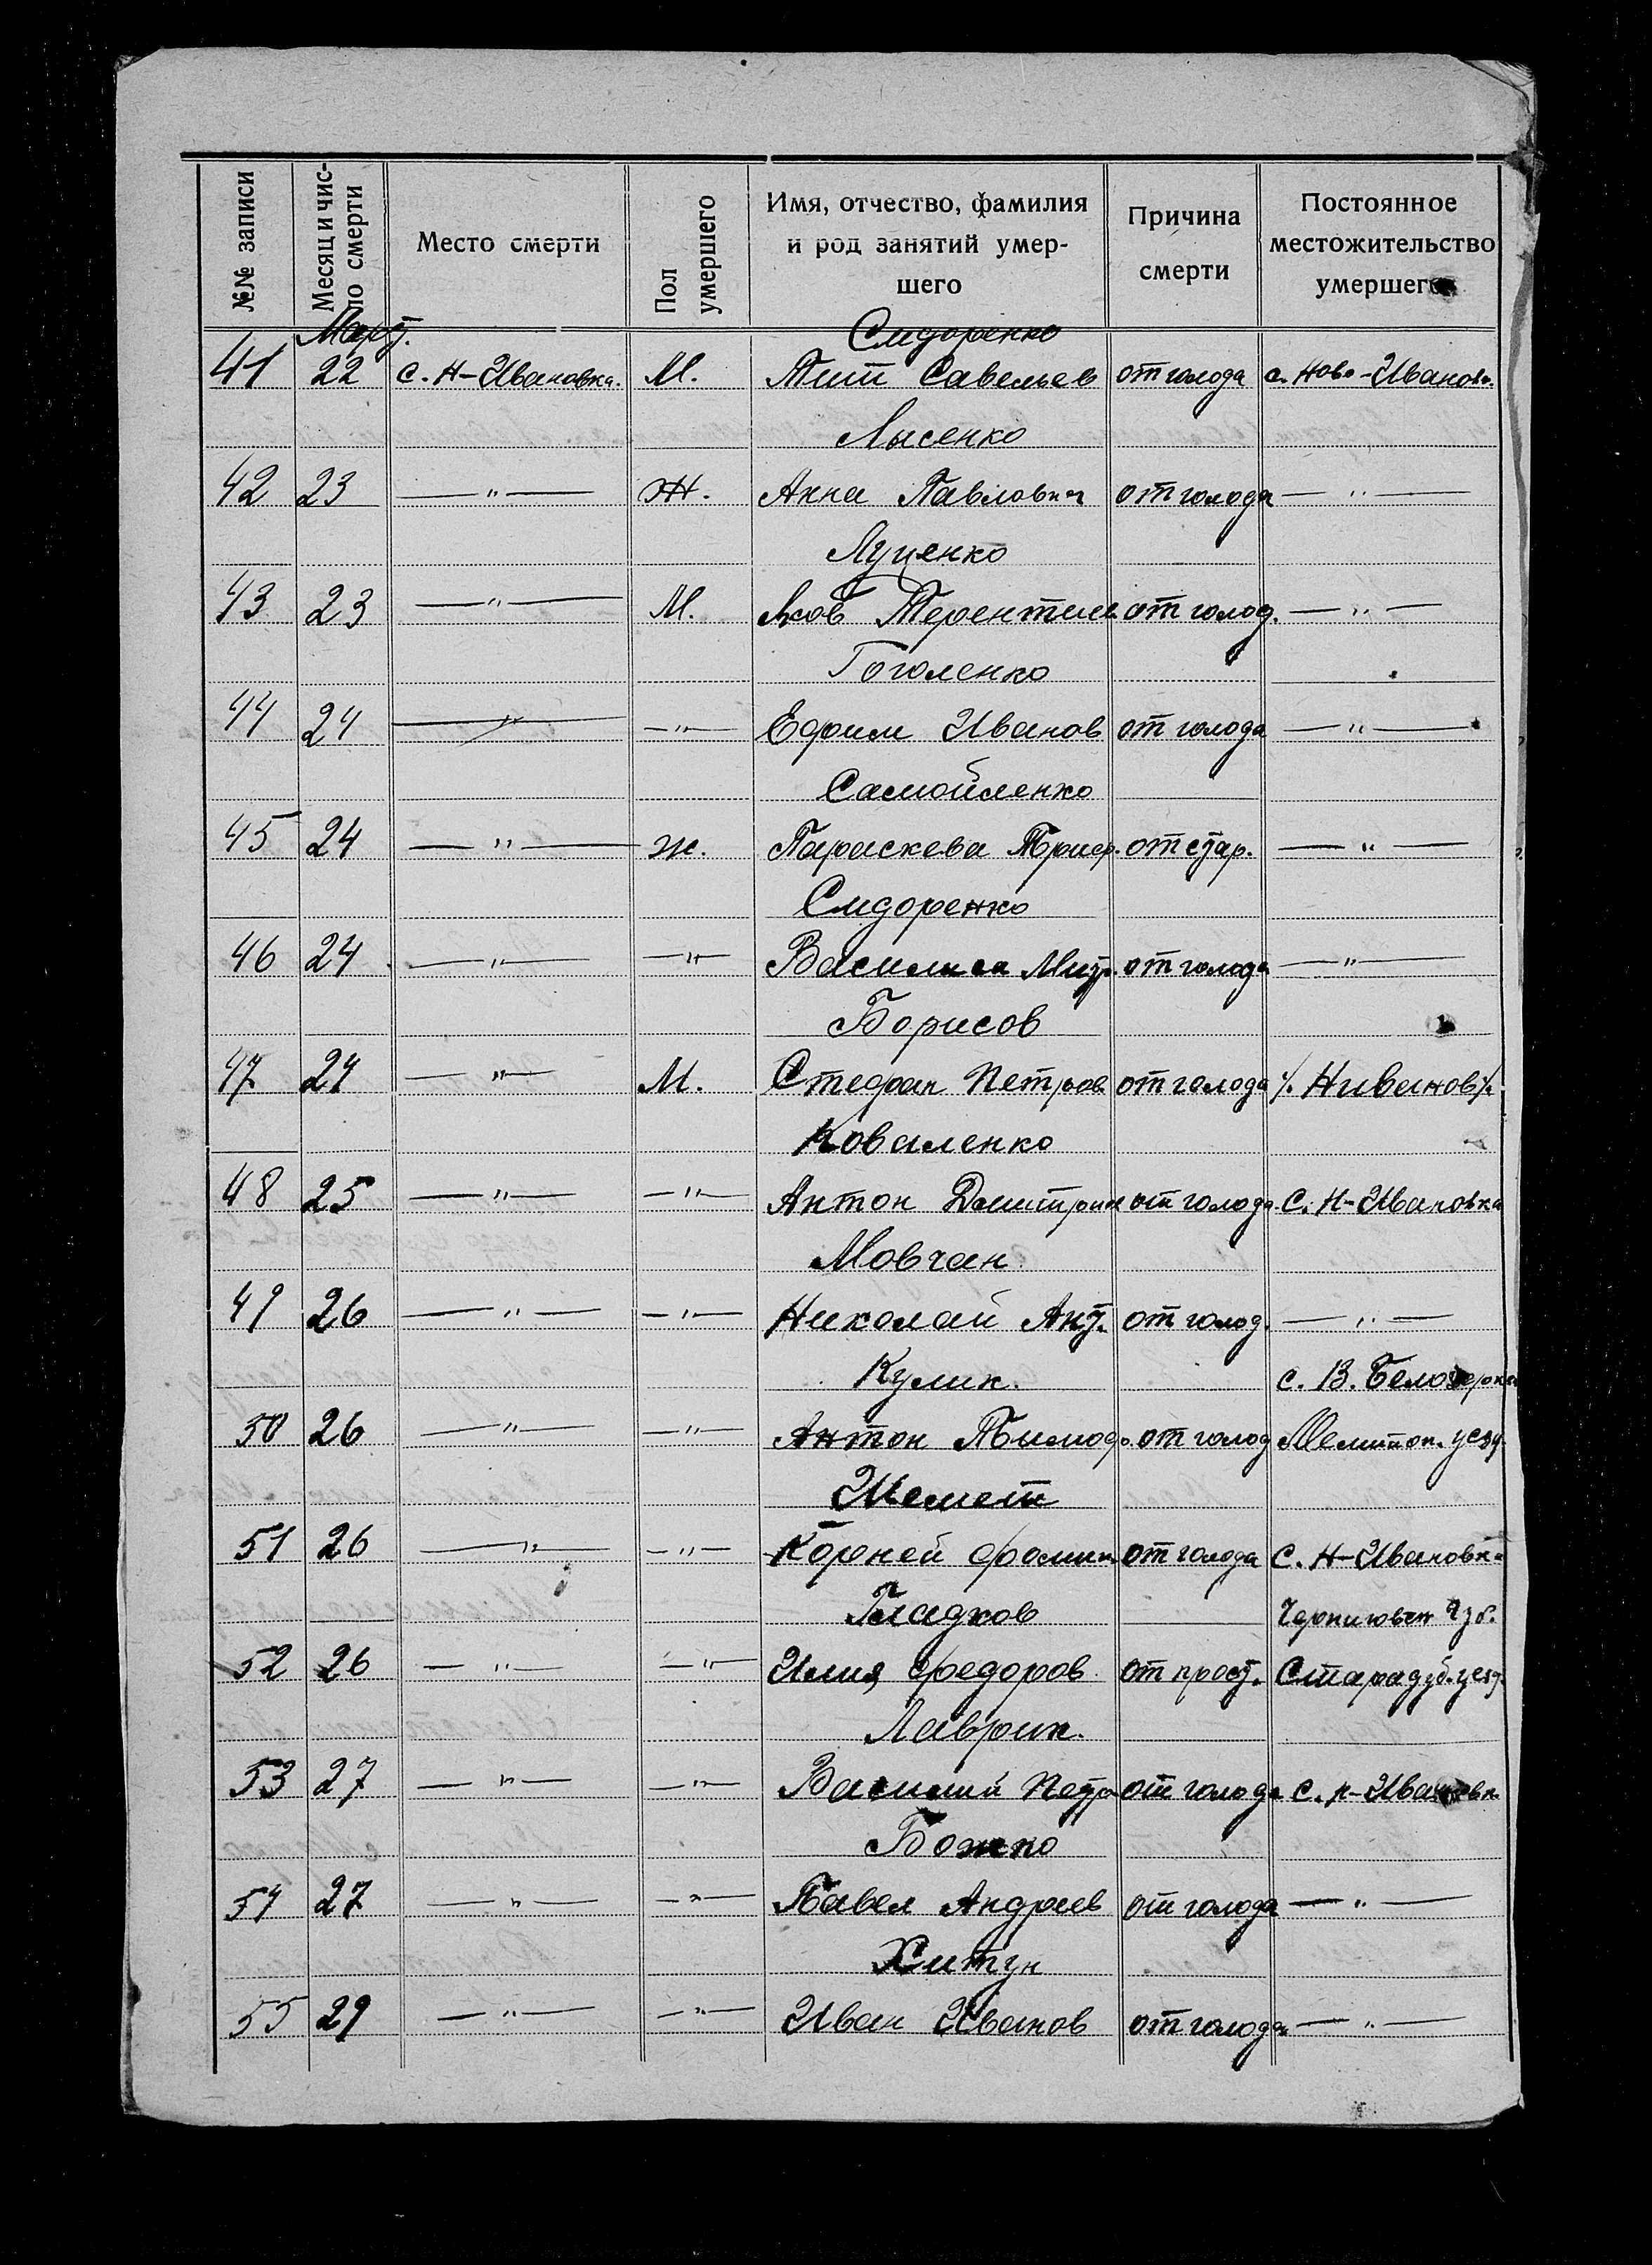 №№ записи
Месяц и число смерти
Место смерти
Пол умершего
Имя, отчество, фамилия и род занятий умершего
Причина смерти
Постоянное местожительство умершего
Март. Сидоренко
41 22 с. Н-Ивановка. М. Тит Савельев от голода с. Ново-Иванов.
Лысенко
42 23 —〃— Ж. Анна Павловн от голода —〃—
Луценко
43 23 —〃— М. Яков Терентиев от голод. —〃—
Гоголенко
44 24 —〃— —〃— Ефим Иванов от голода —〃—
Самойленко
45 24 —〃— ж. Параскева Триф. от стар. —〃—
Сидоренко
46 24 —〃— —〃— Василиса Митр. от голода —〃—
Борисов
47 24 —〃— М. Стефан Петров от голода Н Иванов
Коваленко
48 25 —〃— —〃— Антон Дмитрие от голода. С. Н-Ивановка
Мовчан
49 26 —〃— —〃— Николай Ант. от голод. —〃—
Кулик. с. В. Белозерка
50 26 —〃— —〃— Антон Тимоф. от голод Мелитоп. уезд.
Шемет
51 26 —〃— —〃— Корней Фомин от голода С. Н-Ивановка
Гладков Черниговск губ.
52 26 —〃— —〃— Илия Федоров от прост. Старадуб. уезд.
Лаврик.
53 27 —〃— —〃— Василий Петр от голода с. Н-Ивановк
Божко
54 27 —〃— —〃— Павел Андреев от голода —〃—
Хитун
55 29 —〃— —〃— Иван Иванов от голода —〃—